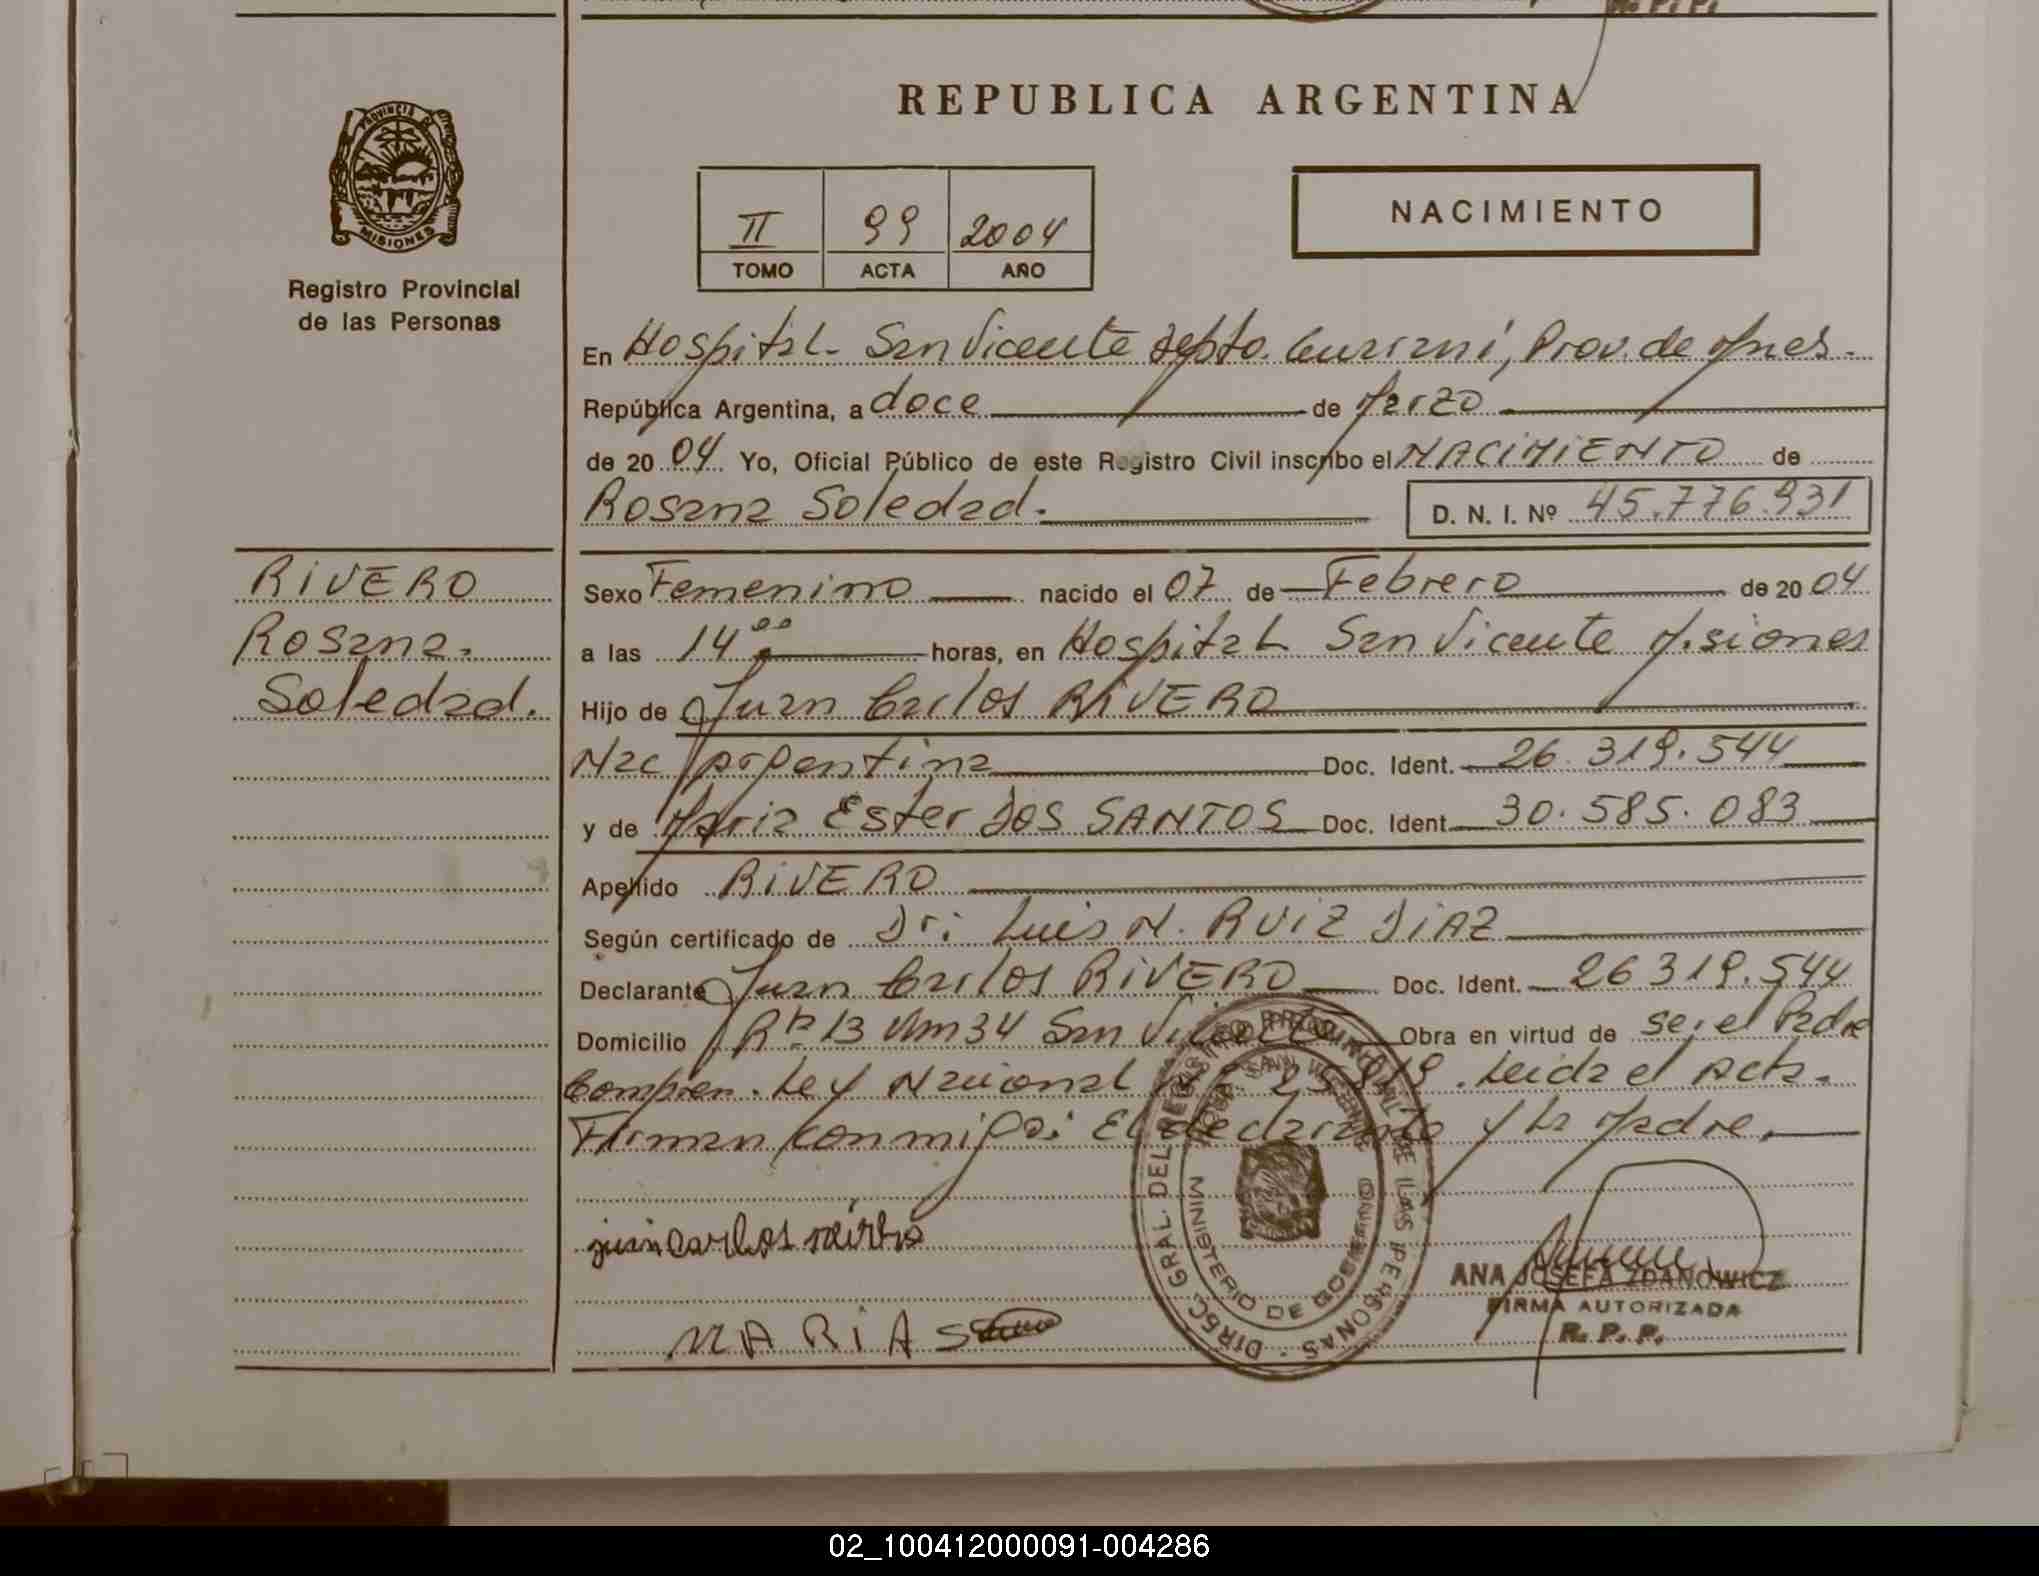 REPUBLICA ARGENTINA
PROVINCIA DE
MISIONES
Registro Provincial
de las Personas
II 99 2004
TOMO ACTA AÑO
NACIMIENTO
En Hospital San Vicente Depto. Guarani, Prov. de Mnes.
República Argentina, a doce de Marzo
de 2004 Yo, Oficial Público de este Registro Civil inscribo el NACIMIENTO de
Rosana Soledad.
D. N. I. Nº 45.776.931
RIVERO
Rosana.
Soledad.
Sexo Femenino nacido el 07 de Febrero de 2004
a las 14 00 horas, en Hospital San Vicente Misiones
Hijo de Juan Carlos RIVERO
Nac Argentina Doc. Ident. 26.319.544
y de Maria Ester DOS SANTOS Doc. Ident. 30.585.083
Apellido RIVERO
Según certificado de Dr: Luis N. RUIZ DIAZ
Declarante Juan Carlos RIVERO Doc. Ident. 26319.544
Domicilio Rta 13 Km 34 San Vicente Obra en virtud de ser el Padre
Compren. Ley Nacional Nº 25.819. Leida el Acta.
Firman conmigo: El declarante y la Madre.
DIREC. GRAL. DEL REGISTRO PROVINCIAL DE LAS PERSONAS
SAN VICENTE
MINISTERIO DE GOBIERNO
juan carlos
MARIA
ANA JOSEFA ZDANOWICZ
FIRMA AUTORIZADA
R. P. P.
02_100412000091-004286